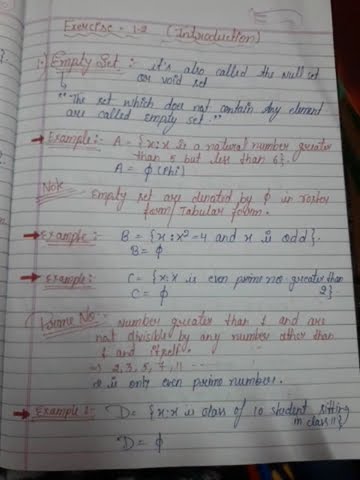 Exercise - 1.2 (Introduction)
1.) Empty Set :- it's also called the Null set
or void set
"The set which does not contain any element
are called empty set."
→ Example:- A = {x:x is a natural number greater
than 5 but less than 6}.
A = ϕ (Phi)
Note - Empty set are denoted by ϕ in roster
form/Tabular form.
→ Example:- B = {x : x²=4 and x is odd}.
B = ϕ
→ Example:- C = {x:x is even prime no greater than
2}
C = ϕ
Prime No:- Number greater than 1 and are
not divisible by any number other than
1 and itself.
→ 2,3,5,7,11 ......
2 is only even prime number.
→ Example:- D = {x:x is class of 10 student sitting
in class 11}
D = ϕ